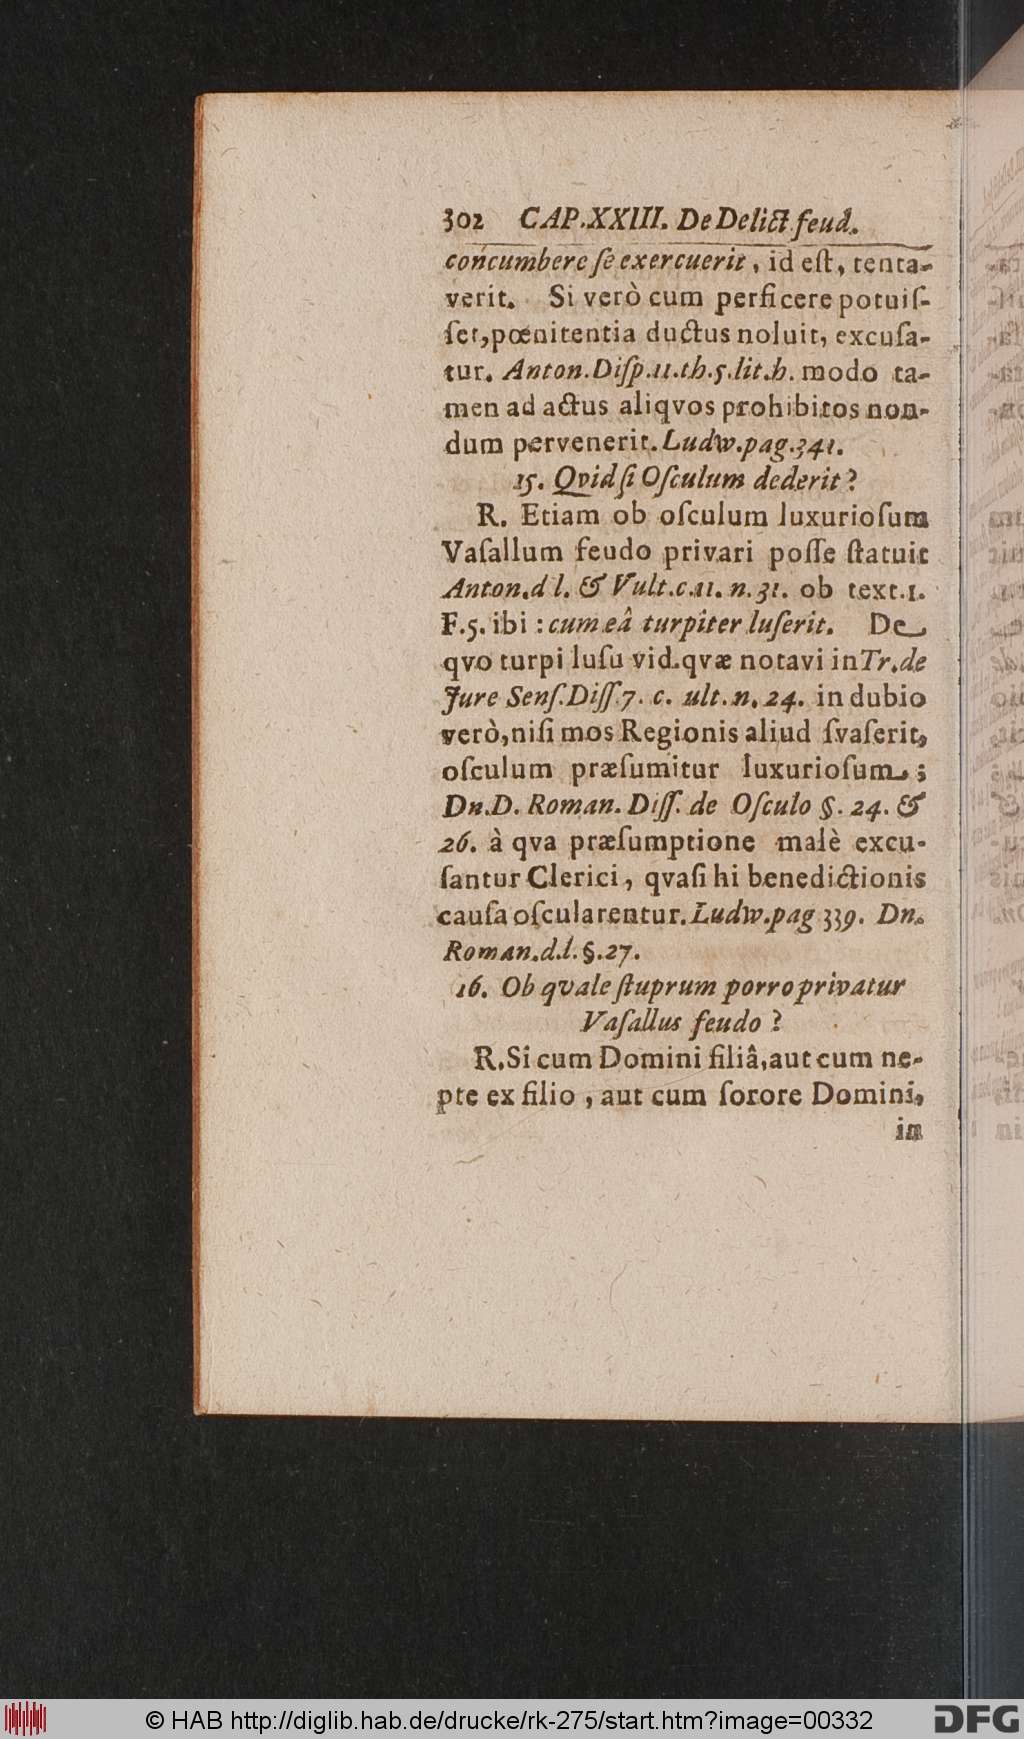 302 CAP.XXIII. De Delict. feud.
concumbere ſe exercuerit, id eſt, tenta-
verit. Si verò cum perficere potuiſ-
ſet, pœnitentia ductus noluit, excuſa-
tur. Anton. Diſp.11.th.5.lit.h. modo ta-
men ad actus aliqvos prohibitos non-
dum pervenerit. Ludw.pag.341.
15. Qvid ſi Oſculum dederit?
R. Etiam ob oſculum luxurioſum
Vaſallum feudo privari poſſe ſtatuit
Anton.d l. & Vult.c.11. n.31. ob text.1.
F.5. ibi: cum eâ turpiter luſerit. De
qvo turpi luſu vid. qvæ notavi in Tr. de
Jure Senſ. Diſſ.7. c. ult. n. 24. in dubio
verò, niſi mos Regionis aliud ſvaſerit,
oſculum præſumitur luxurioſum;
Dn.D. Roman. Diſſ. de Oſculo §. 24. &
26. à qva præſumptione malè excu-
ſantur Clerici, qvaſi hi benedictionis
cauſa oſcularentur. Ludw.pag 339. Dn.
Roman.d.l. §.27.
16. Ob qvale ſtuprum porro privatur
Vaſallus feudo?
R. Si cum Domini filiâ, aut cum ne-
pte ex filio, aut cum ſorore Domini,
in
© HAB http://diglib.hab.de/drucke/rk-275/start.htm?image=00332
DFG